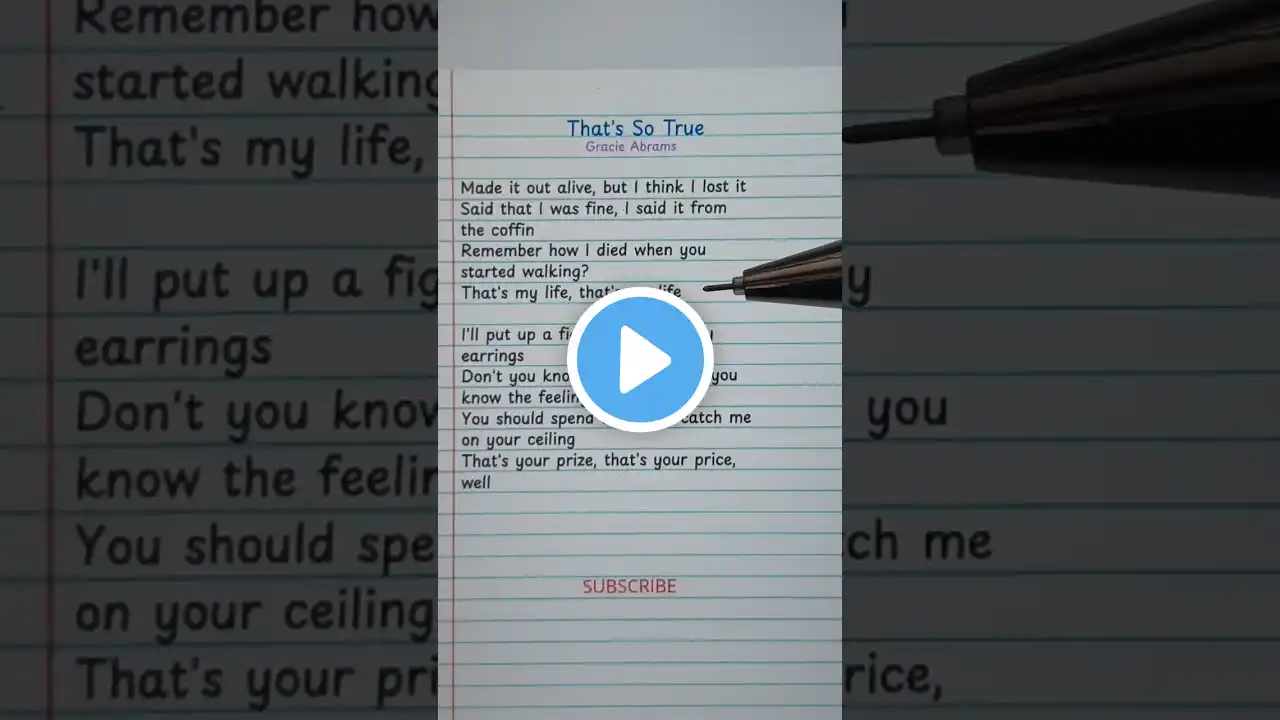 That's So True
Gracie Abrams
Made it out alive, but I think I lost it
Said that I was fine, I said it from
the coffin
Remember how I died when you
started walking?
That's my life,
I'll put up a
earrings
Don't you you
know the
You should spend catch me
on your ceiling
That's your prize, that's your price,
well
SUBSCRIBE